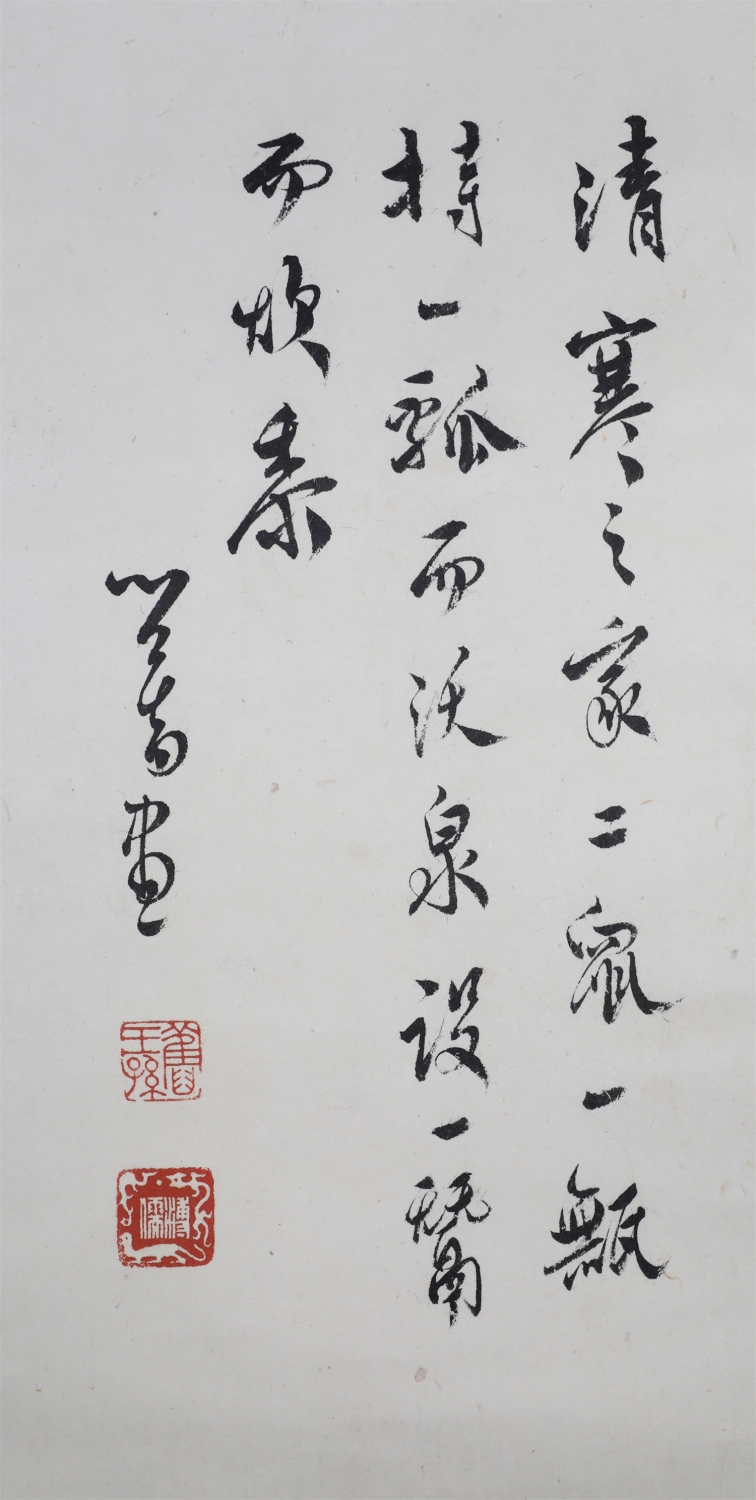 清寒之家二鼠一甒
持一瓢而沃泉設一鬵
而炊黍
心畬畫
舊王孫
溥儒